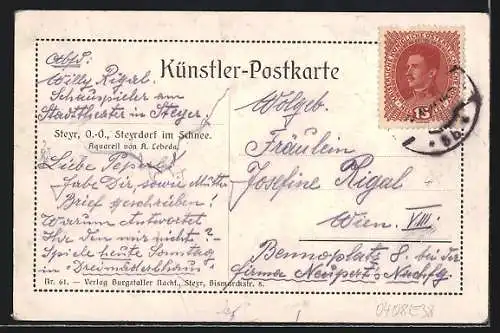 Künstler-Postkarte
Absd:
Willy Rigal
Schauspieler am
Stadttheater in Steyer.
Steyr, O.-Ö., Steyrdorf im Schnee.
Aquarell von A. Lebeda.
Liebe Peperl!
Habe Dir, sowie Mutter
Brief geschrieben!
Warum Antwortet
Ihr den mir nicht?
Spiele heute Sonntag
in "Dreimäderlhaus"
Nr. 61. — Verlag Burgstaller Nachf., Steyr, Bismarckstr. 8.
15
Wolgeb.
Fräulein
Josefine Rigal
Wien. VIII.
Bennoplatz 8 bei der
Firma Neupert's Nachflg.
0408E38